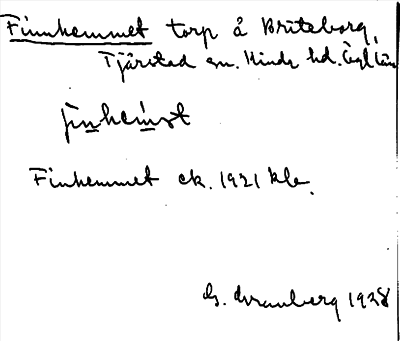 Finnhemmet torp å Briteborg,
Tjärstad sn. Kinds hd. Ögl län
Finhemmet ek. 1921 kla.
G. Granberg 1928